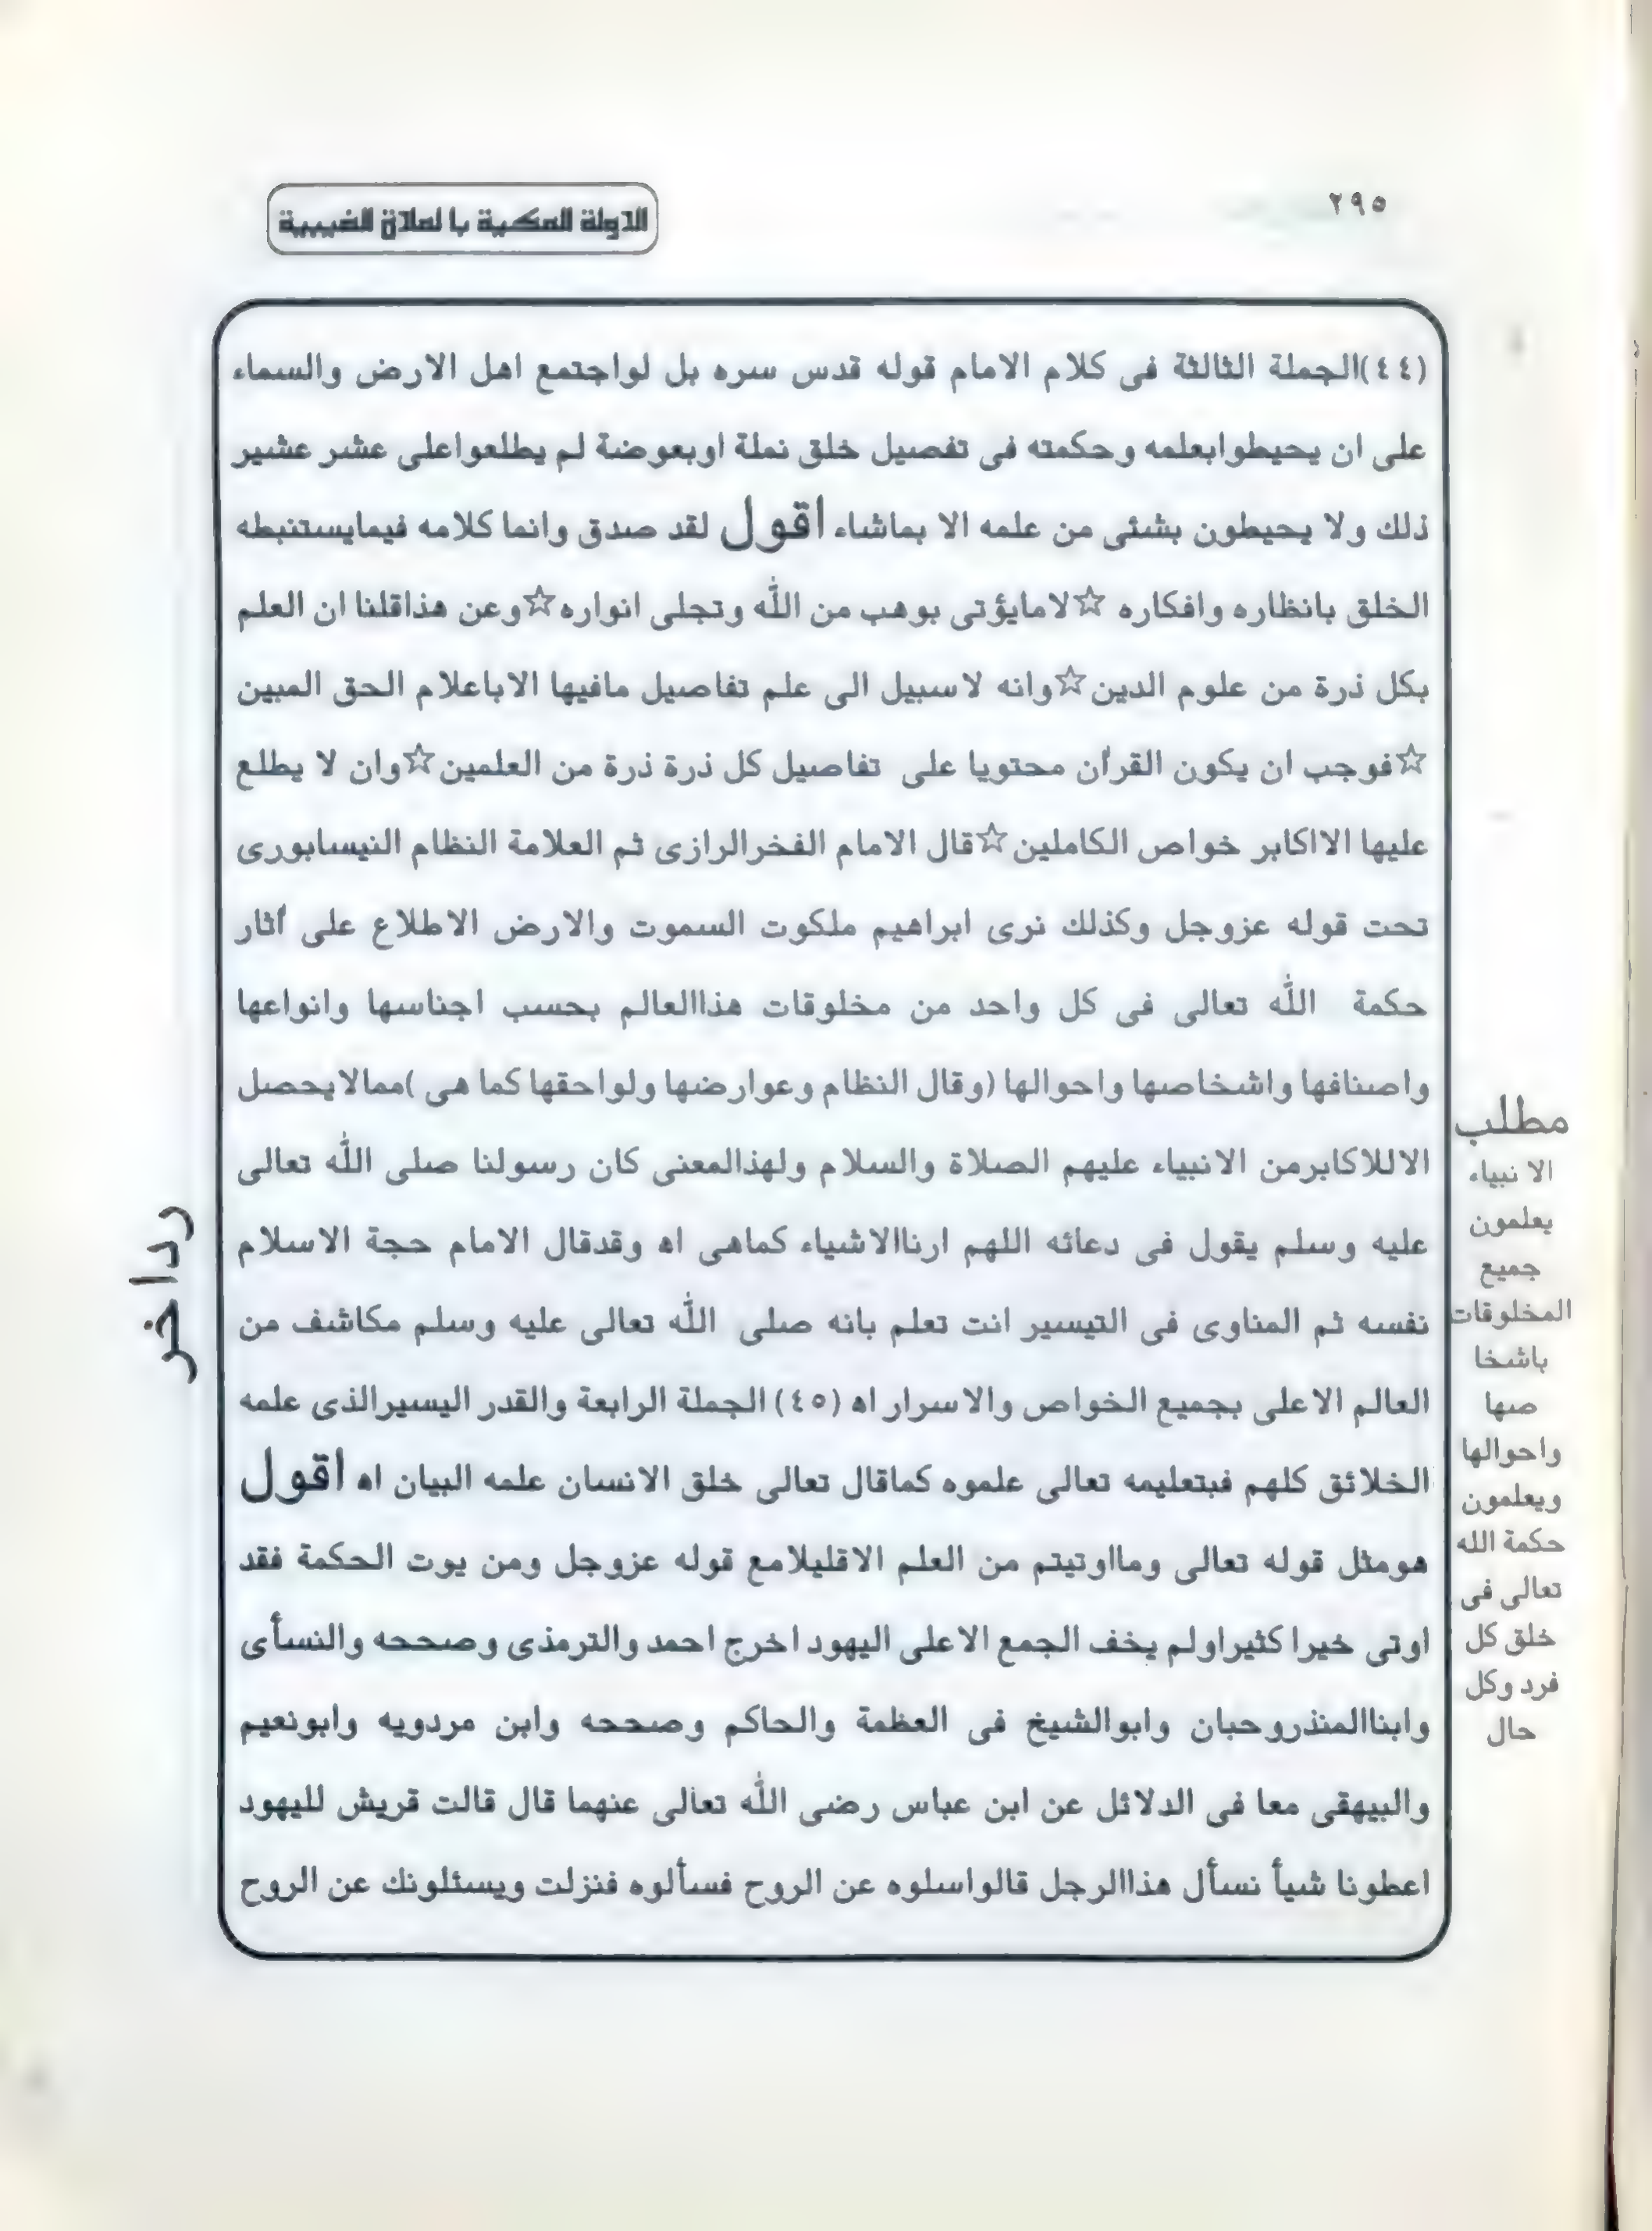 ٢٩٥
الدولة المكية با لمادة الغيبية
(٤٤)الجملة الثالثة فى كلام الامام قوله قدس سره بل لواجتمع اهل الارض والسماء
على ان يحيطوابعلمه وحكمته فى تفصيل خلق نملة اوبعوضة لم يطلعواعلى عشر عشير
ذلك ولا يحيطون بشئى من علمه الا بماشاء أقول لقد صدق وانما كلامه فيمايستنبطه
الخلق بانظاره وافكاره ☆لامايؤتى بوهب من الله وتجلى انواره☆وعن هذاقلنا ان العلم
بكل ذرة من علوم الدين☆وانه لاسبيل الى علم تفاصيل مافيها الاباعلام الحق المبين
☆فوجب ان يكون القرأن محتويا على تفاصيل كل ذرة ذرة من العلمين☆وان لا يطلع
عليها الااكابر خواص الكاملين☆قال الامام الفخرالرازى ثم العلامة النظام النيسابورى
تحت قوله عزوجل وكذلك نرى ابراهيم ملكوت السموت والارض الاطلاع على أثار
حكمة الله تعالى فى كل واحد من مخلوقات هذاالعالم بحسب اجناسها وانواعها
واصنافها واشخاصها واحوالها (وقال النظام وعوارضها ولواحقها كما هى )ممالايحصل
الاللاكابرمن الانبياء عليهم الصلاة والسلام ولهذالمعنى كان رسولنا صلى الله تعالى
عليه وسلم يقول فى دعائه اللهم ارناالاشياء كماهى اه وقدقال الامام حجة الاسلام
نفسه ثم المناوى فى التيسير انت تعلم بانه صلى الله تعالى عليه وسلم مكاشف من
العالم الاعلى بجميع الخواص والاسرار اه (٤٥) الجملة الرابعة والقدر اليسيرالذى علمه
الخلائق كلهم فبتعليمه تعالى علموه كماقال تعالى خلق الانسان علمه البيان اه أقول
هومثل قوله تعالى ومااوتيتم من العلم الاقليلامع قوله عزوجل ومن يوت الحكمة فقد
اوتى خيرا كثيراولم يخف الجمع الاعلى اليهود اخرج احمد والترمذى وصححه والنسأى
وابناالمنذروحبان وابوالشيخ فى العظمة والحاكم وصححه وابن مردويه وابونعيم
والبيهقى معا فى الدلائل عن ابن عباس رضى الله تعالى عنهما قال قالت قريش لليهود
اعطونا شيأ نسأل هذاالرجل قالواسلوه عن الروح فسألوه فنزلت ويسئلونك عن الروح
مطلب
الا نبياء
يعلمون
جميع
المخلوقات
باشخا
صها
واحوالها
ويعلمون
حكمة الله
تعالى فى
خلق كل
فرد وكل
حال
رداخر